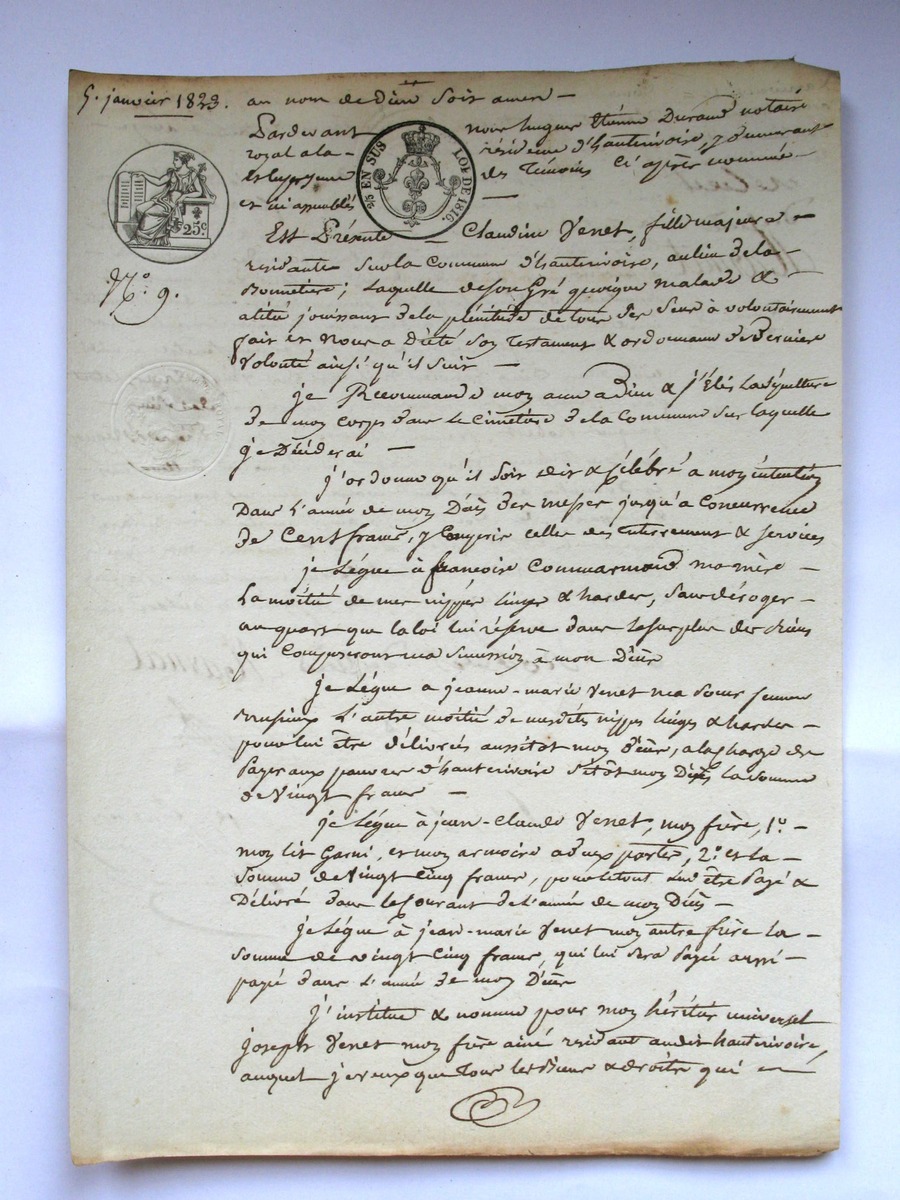 5. janvier 1823. au nom de dieu soit amen —
Pardevant nous hugues Etienne Durand notaire
royal a la résidence d'hauterivoire, y demeurant
et en présence des Témoins ci après nommés
et ci assemblés —
5/10 EN SUS LOI DE 1816.
25c.
N.o 9.
Est Présente — Claudine Venet, fille majeure —
résidante sur la Commune d'hauterivoire, au lieu de la
Bonnetiere ; laquelle de son Gré quoique malade &
alitée jouissant de la plénitude de tous ses sens à volontairement
fait et nous a dicté son Testament & ordonnance de Derniere
volonté ainsi qu'il suit —
je Recommande mon ame a Dieu & j'Elis la sépulture
de mon corps dans le Cimetière de la Commune sur laquelle
je Décéderai —
j'ordonne qu'il soit dit & Célébré a mon intention
Dans l'année de mon Décès des messes jusqu'a Concurrence
de Cent francs, y Compris celles des Enterrement & services
je Légue à francoise Commarmond ma mère —
La moitié de mes nippes linges & hardes, sans déroger —
au quart que la loi lui réserve dans le surplus des biens
qui Composeront ma succession à mon Décès
je Légue a jeanne-marie Venet ma sœur femme
L'autre moitié de mesdites nippes linges & hardes —
pour lui être délivrées aussitot mon décès, a la charge de
Payer aux pauvres d'hauterivoire sitôt mon Décès la somme
de Vingt francs —
je Légue à jean-Claude Venet, mon frère, 1.o —
mon lit Garni, et mon armoire a deux portes, 2.o et la —
somme de Vingt Cinq francs, pour le tout lui être Payé &
Délivré dans le Courant de l'année de mon Décès —
je Légue à jean-marie Venet mon autre frère la —
somme de vingt Cinq francs, qui lui sera Payé aussi —
payé dans l'année de mon Décès
j'institue & nomme pour mon héritier universel
joseph Venet mon frère ainé résidant audit hauterivoire,
auquel je veux que Tous les Biens & droits qui —